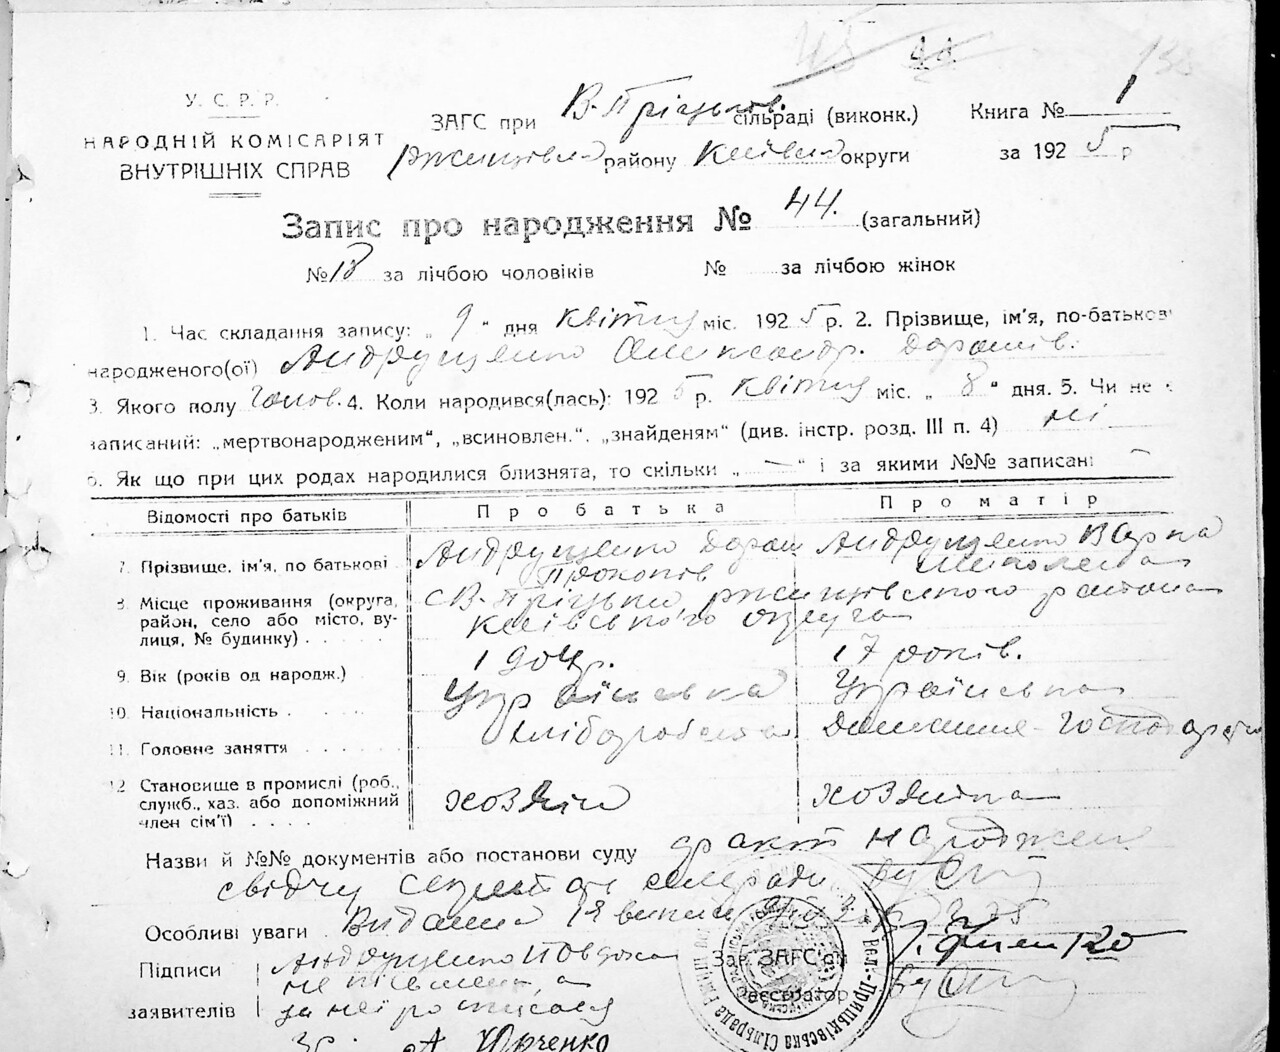 У. С. Р. Р.
НАРОДНІЙ КОМІСАРІЯТ
ВНУТРІШНІХ СПРАВ
ЗАГС при В-Пріцьков. сільраді (виконк.)
району Київськ округи
Книга № 1
за 1925 р
Запис про народження № 44. (загальний)
№ 18 за лічбою чоловіків № за лічбою жінок
1. Час складання запису: „ 9 “ дня Квітня міс. 1925 р. 2. Прізвище, ім'я, по-батькові
народженого(ої) Андрущенко Олександр.
3. Якого полу Чолов. 4. Коли народився(лась): 1925 р. Квітня міс. „ 8 “ дня. 5. Чи не є
записаний: „мертвонародженим“, „всиновлен.“. „знайденям“ (див. інстр. розд. III п. 4) ні
6. Як що при цих родах народилися близнята, то скільки „ — “ і за якими №№ записані —
Відомості про батьків Про батька Про матір
7. Прізвище, ім'я, по батькові Андрущенко Прокопів Андрущенко Варка
8. Місце проживання (округа, район, село або місто, вулиця, № будинку) . . . . с В-Пріцьки, ржищівського района Київського округа
9. Вік (років од народж.) 1904 р. 17 років.
10. Національність . . . . Українська Українська
11. Головне заняття . . . . . . Хліборобська Домашнє-Господарство
12. Становище в промислі (роб., служб., хаз. або допоміжний член сім'ї) . . . . хозяїн хозяйка
Назви й №№ документів або постанови суду факт народження
свідчу
Особливі уваги .
Підписи
заявителів
Андрущенко
не письменна
за неї росписався
А Юрченко
Зав. ЗАГС'ом
Реєстратор
Вел.-Прицьківська Сільрада